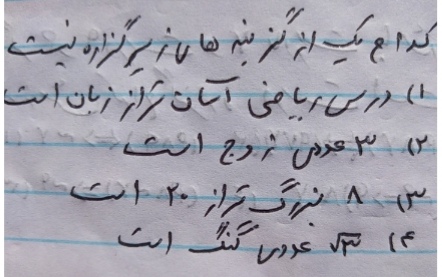 کدام یک از گزینه های زیر گزاره نیست
۱) درس ریاضی آسان تر از زبان است
۲) ۳ عددی زوج است
۳) ۸ بزرگ تر از ۲۰ است
۴) √۳ عددی گنگ است